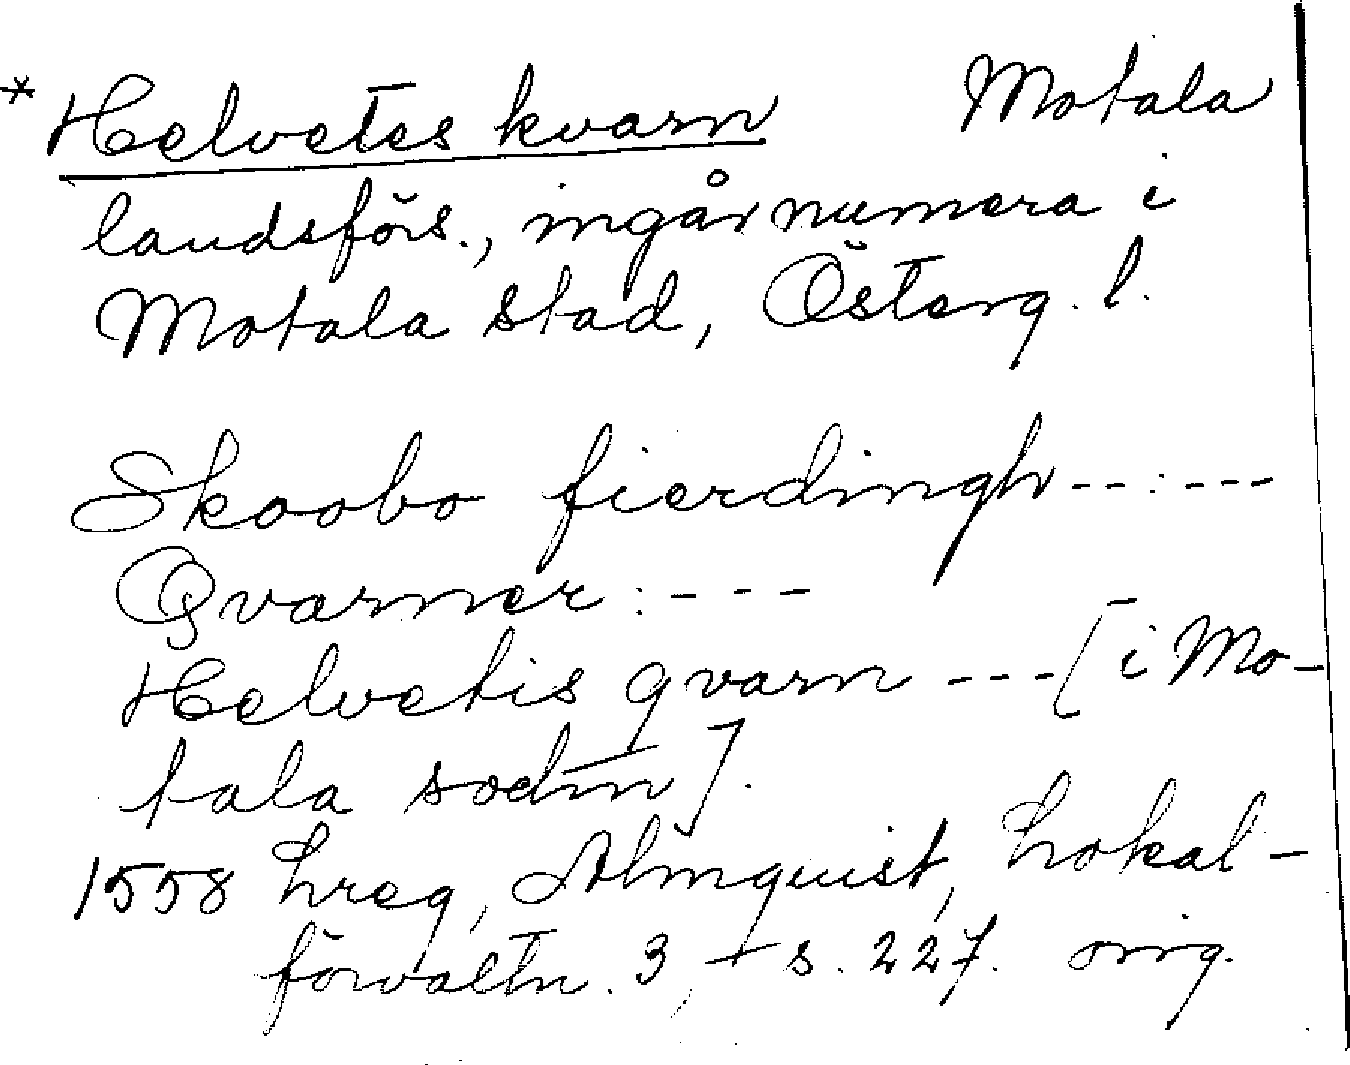 * Helvetes kvarn Motala
landsförs., ingår numera i
Motala stad, Österg. l.
Skoobo fierdingh --:---
Qvarner: ---
Helvetis qvarn --- [i Mo-
tala sochn].
1558 Lreg, Almquist, Lokal-
förvaltn. 3, + s. 227. orig.